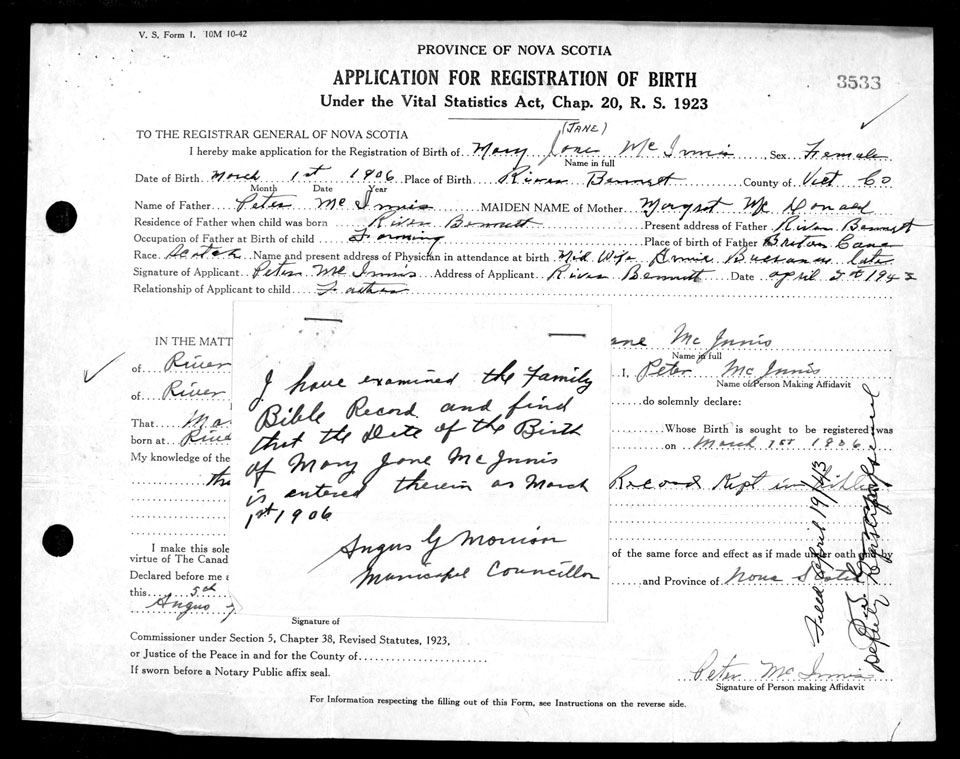 V. S. Form 1. 10M 10-42
PROVINCE OF NOVA SCOTIA
APPLICATION FOR REGISTRATION OF BIRTH
3533
Under the Vital Statistics Act, Chap. 20, R. S. 1923
(JANE)
TO THE REGISTRAR GENERAL OF NOVA SCOTIA
I hereby make application for the Registration of Birth of Mary Jane McInnis, Sex Female
Name in full
Date of Birth March 1st 1906 Place of Birth River Bennett County of Vict Co
Month Date Year
Name of Father Peter McInnis MAIDEN NAME of Mother Margret Mc Donald
Residence of Father when child was born River Bennett Present address of Father River Bennett
Occupation of Father at Birth of child Farming Place of Birth of Father Briton Cove
Race. Scotch Name and present address of Physician in attendance at birth Mid Wife Annie Buchanan late
Signature of Applicant Peter McInnis Address of Applicant River Bennett Date April 5th 1943
Relationship of Applicant to child Father
IN THE MATT ane McInnis
Name in full
of River I, Peter McInnis
Name of Person Making Affidavit
of River do solemnly declare:
That Ma Whose Birth is sought to be registered was
born at Rive on March 1st 1906
My knowledge of the
Record Kept in Bible
I make this sole of the same force and effect as if made under oath by
virtue of The Canad
Declared before me a and Province of Nova Scotia
this 5th
Angus
I have examined the Family
Bible Record and find
that the Date of the Birth
of Mary Jane McInnis
is entered therein as March
1st 1906
Angus G Morrison
Municipal Councillor
Signature of
Commissioner under Section 5, Chapter 38, Revised Statutes, 1923,
or Justice of the Peace in and for the County of
If sworn before a Notary Public affix seal.
Peter McInnis
Signature of Person making Affidavit
For Information respecting the filling out of this Form, see Instructions on the reverse side.
Filed April 19/43
Deputy Registrar General